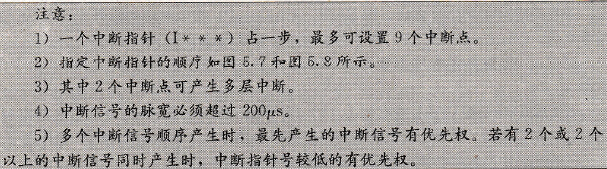 注意：
1）一个中断指针（I＊＊＊）占一步，最多可设置9个中断点。
2）指定中断指针的顺序如图5.7和图5.8所示。
3）其中2个中断点可产生多层中断。
4）中断信号的脉宽必须超过200μs。
5）多个中断信号顺序产生时，最先产生的中断信号有优先权。若有2个或2个
以上的中断信号同时产生时，中断指针号较低的有优先权。